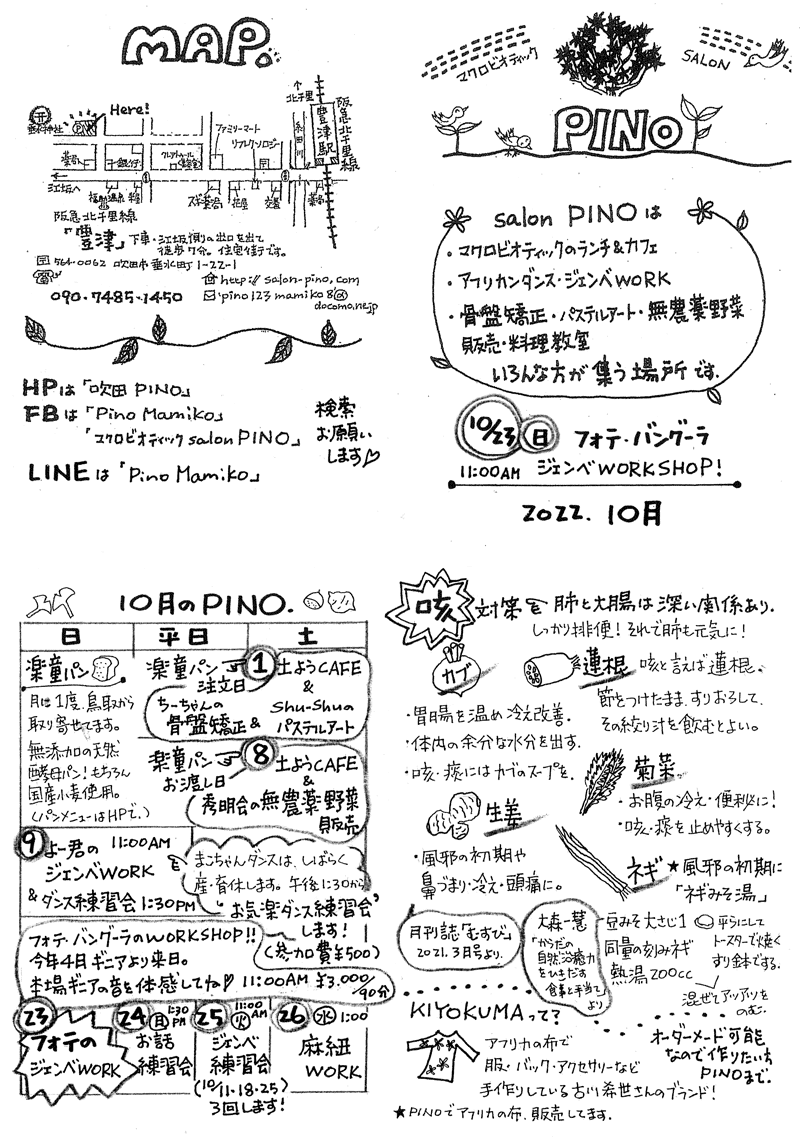 MAP.
Here!
垂水神社
PINO
ファミリーマート
リアレクソロジー
↑北千里
豊津駅
阪急北千里線
糸田川
薬局
銀行
江坂へ
花屋
交番
薬局
阪急北千里線
「豊津」下車・江坂側の出口を出て
徒歩7分。住宅街です。
〒564-0062 吹田市垂水町1-22-1
http://salon-pino.com
090-7485-1450
pino123mamiko8@
docomo.ne.jp
HPは「吹田 PINO」
FBは「Pino Mamiko」
「マクロビオティック salon PINO」
検索
お願い
します♡
LINEは「Pino Mamiko」
マクロビオティック
SALON
PINO
salon PINOは
・マクロビオティックのランチ&カフェ
・アフリカンダンス・ジェンベWORK
・骨盤矯正・パステルアート・無農薬野菜
販売・料理教室
いろんな方が集う場所です。
10/23 日 フォテ・バングーラ
11:00AM ジェンベWORKSHOP!
2022. 10月
10月のPINO.
日 平日 土
楽童パン
月に1度、鳥取から
取り寄せてます。
無添加の天然
酵母パン!もちろん
国産小麦使用。
(パンメニューはHPで。)
楽童パン☞
注文日
1 土ようCAFE
&
Shu-Shuの
パステルアート
ちーちゃんの
骨盤矯正&
楽童パン☞
お渡し日
8 土ようCAFE
&
秀明会の無農薬野菜
販売
9 よー君の 11:00AM
ジェンベWORK
&ダンス練習会 1:30PM
まこちゃんダンスは、しばらく
産・育休します。午後1:30から
"お気楽ダンス練習会"
します!
(参加費¥500)
フォテ・バングーラのWORKSHOP!!
今年4月ギニアより来日。
本場ギニアの音を体感してね♡ 11:00AM ¥3,000/90分
23
フォテの
ジェンベWORK
24 月 1:30PM
お話
練習会
25 火 11:00AM
ジェンベ
練習会
(10/11・18・25)
3回します!
26 水 1:00
麻紐
WORK
咳 対策 肺と大腸は深い関係あり。
しっかり排便!それで肺も元気に!
カブ
・胃腸を温め冷え改善。
・体内の余分な水分を出す。
・咳・痰にはカブのスープを。
蓮根 咳と言えば蓮根。
節をつけたまますりおろして、
その絞り汁を飲むとよい。
菊菜
・お腹の冷え・便秘に!
・咳・痰を止めやすくする。
生姜
・風邪の初期や
鼻づまり・冷え・頭痛に。
ネギ ★風邪の初期に
「ネギみそ湯」
豆みそ大さじ1
平らにして
トースターで焼く
同量の刻みネギ
すり鉢でする。
熱湯200cc
混ぜてアツアツを
のむ。
月刊誌「むすび」
2021.3月号より。
大森一慧
「からだの
自然治癒力
をひきだす
食事と手当て」
より
KIYOKUMAって?
アフリカの布で
服・バック・アクセサリーなど
手作りしている古川希世さんのブランド!
オーダーメード可能
なので作りたい方
PINOまで。
★PINOでアフリカの布、販売してます。